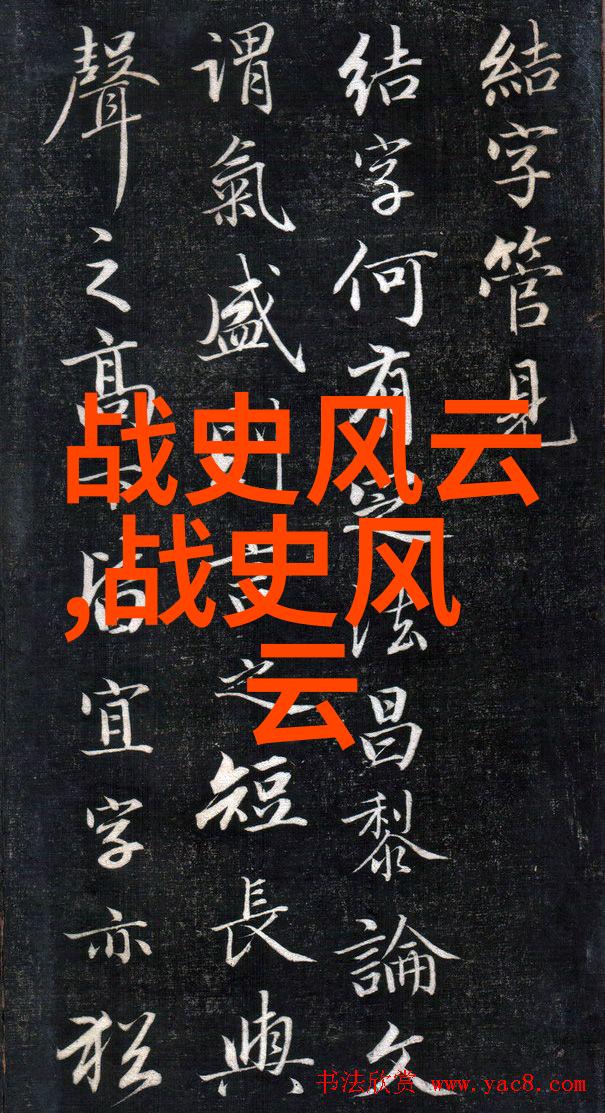 結字管見
結字何有定法昌黎論文
謂氣盛則言之短長與
聲之高下皆宜字亦猶
战史风云
,战史风
云
书法欣赏 www.yac8.com